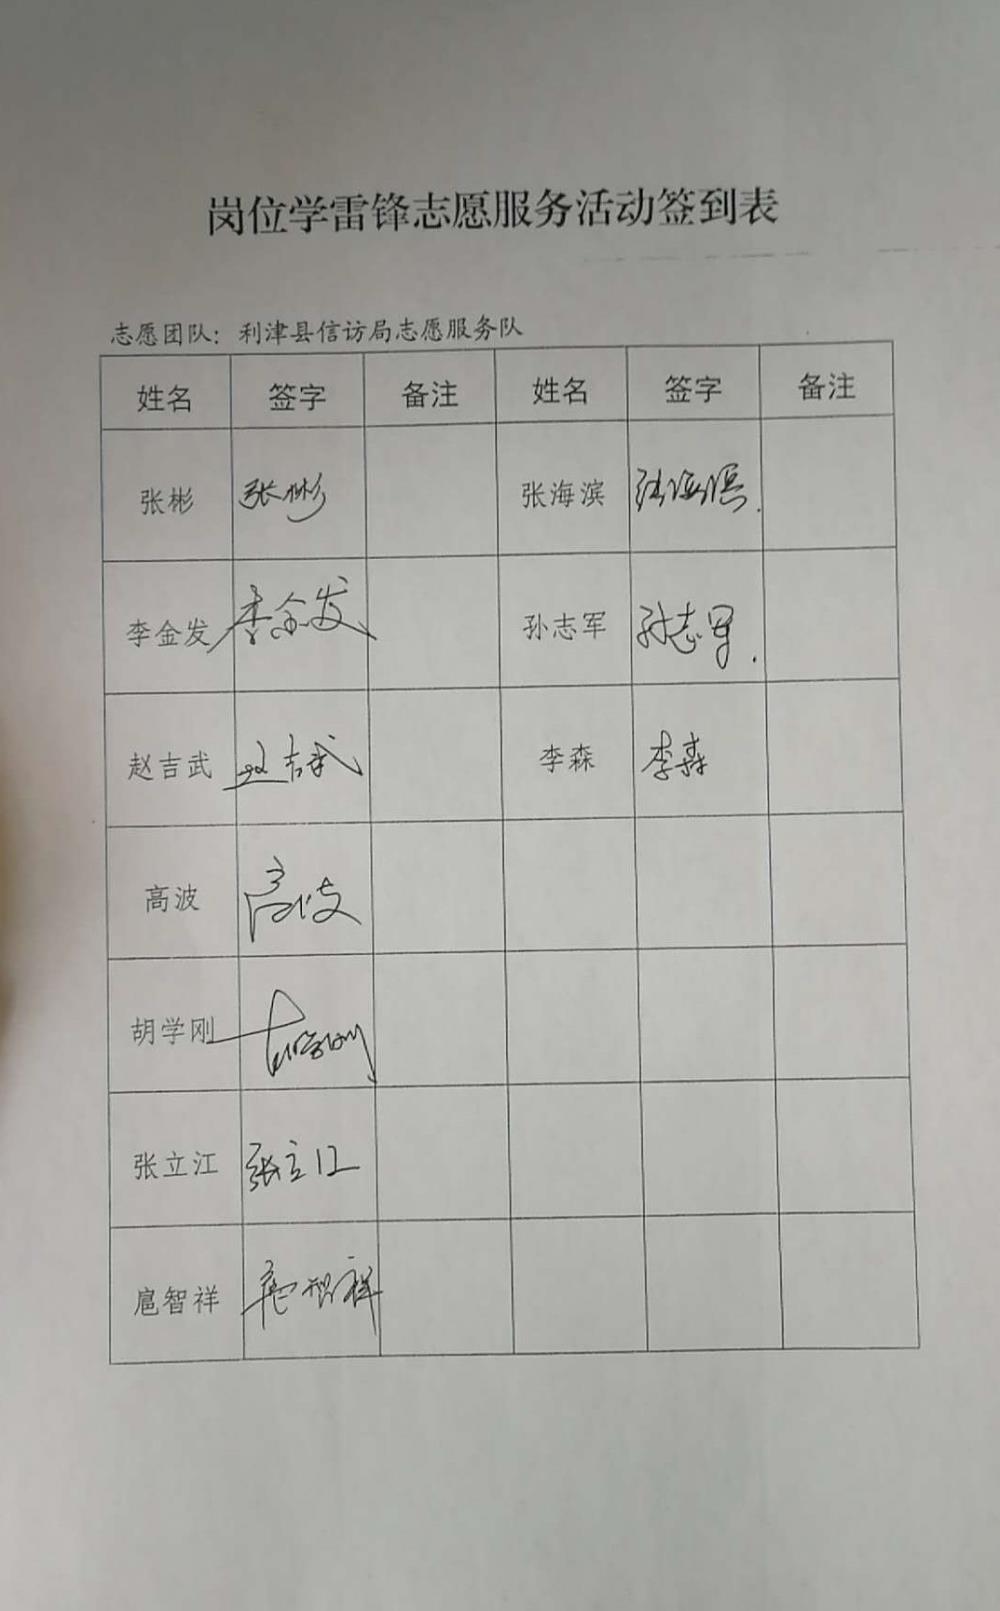 岗位学雷锋志愿服务活动签到表
志愿团队：利津县信访局志愿服务队
姓名 签字 备注 姓名 签字 备注
张彬 张彬 张海滨 张海滨
李金发 李金发 孙志军 孙志军
赵吉武 赵吉武 李森 李森
高波 高波
胡学刚 胡学刚
张立江 张立江
扈智祥 扈智祥